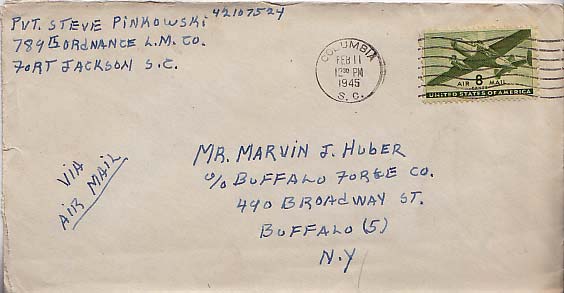 PVT. STEVE PINKOWSKI 42107524
789 th ORDNANCE L.M. CO.
FORT JACKSON S.C.
COLUMBIA
FEB 11
12 30 PM
1945
S. C.
AIR 8 MAIL
CENTS
UNITED STATES OF AMERICA
VIA
AIR MAIL
MR. MARVIN J. HUBER
c/o BUFFALO FORGE CO.
490 BROADWAY ST.
BUFFALO (5)
N.Y